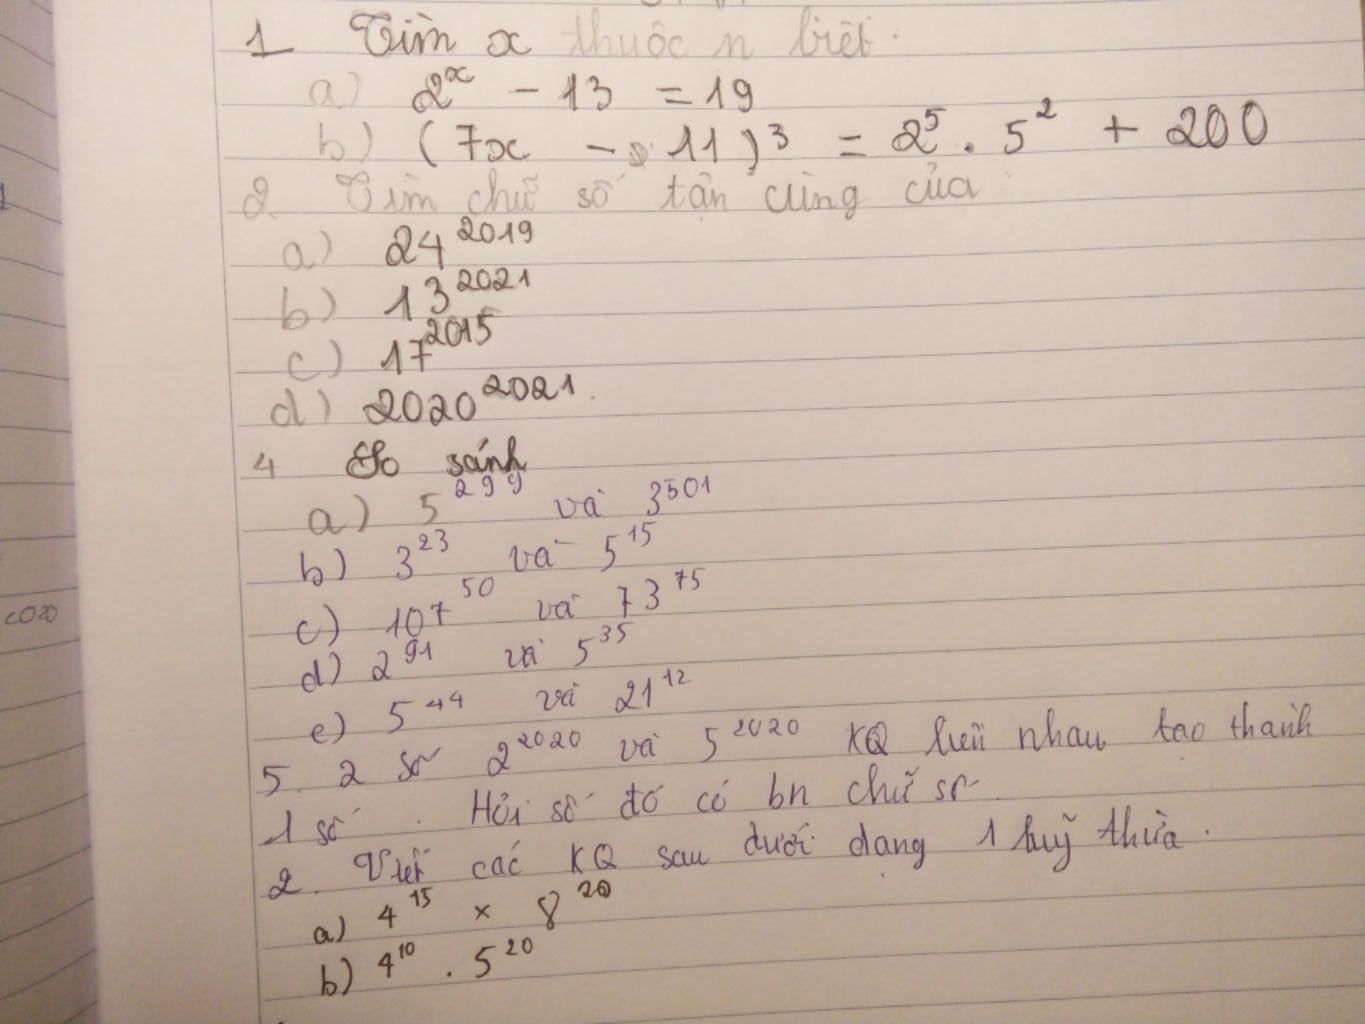 1 Tìm x thuộc n biết.
a) 2ˣ - 13 = 19
b) (7x - 11)³ = 2⁵ . 5² + 200
2 Tìm chữ số tận cùng của
a) 24²⁰¹⁹
b) 13²⁰²¹
c) 17²⁰¹⁵
d) 2020²⁰²¹.
4 So sánh
a) 5²⁹⁹ và 3⁵⁰¹
b) 3²³ và 5¹⁵
c) 107⁵⁰ và 73⁷⁵
d) 2⁹¹ và 5³⁵
e) 5⁴⁴ và 21¹²
5. 2 số 2²⁰²⁰ và 5²⁰²⁰ KQ liền nhau tạo thành
1 số. Hỏi số đó có bn chữ số
2. Viết các KQ sau dưới dạng 1 luỹ thừa.
a) 4¹⁵ × 8²⁰
b) 4¹⁰ . 5²⁰